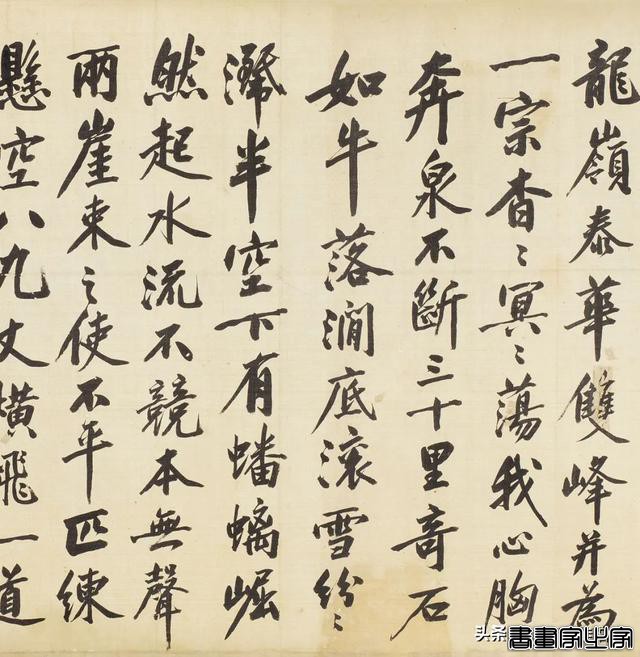 龍嶺泰華雙峰并為
一宗杳〻冥〻蕩我心胸
奔泉不斷三十里奇石
如牛落澗底滾雪紛〻
半空下有蟠螭崛
然起水流不競本無聲
兩崖束之使不平匹練
懸空八九丈橫飛一道
头条